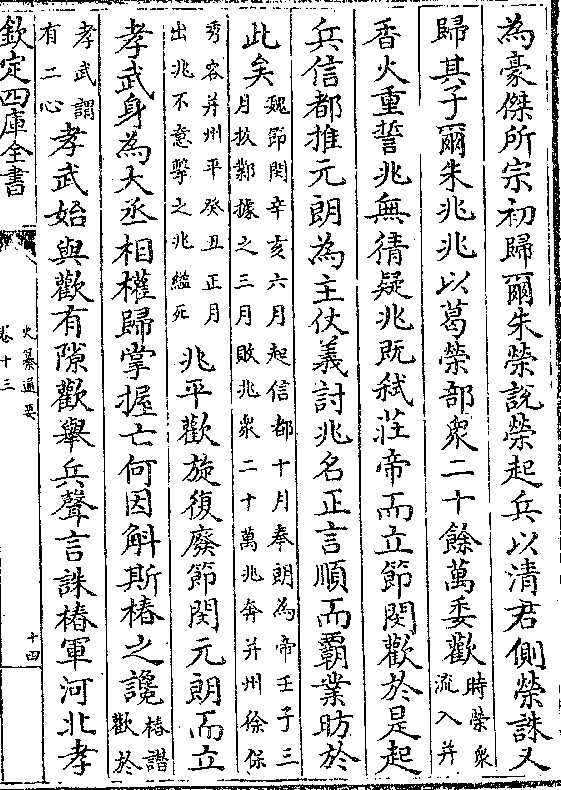 為豪傑所宗初歸爾朱榮說榮起兵以清君側榮誅又
歸其子爾朱兆兆以葛榮部衆二十餘萬委歡時榮衆流入并
香火重誓兆無猜疑兆既弒莊帝而立節閔歡於是起
兵信都推元朗為主仗義討兆名正言順而霸業昉於
此矣魏節閔辛亥六月起信都十月奉朗為帝壬子三月拔鄴據之三月敗兆衆二十萬兆奔并州徐保
秀容并州平癸丑正月出兆不意擊之兆縊死兆平歡旋復廢節閔元朗而立
孝武身為大丞相權歸掌握亡何因斛斯椿之讒椿譖歡於
孝武謂有二心孝武始與歡有隙歡舉兵聲言誅椿軍河北孝
欽定四庫全書
史纂通要
卷十三
十四